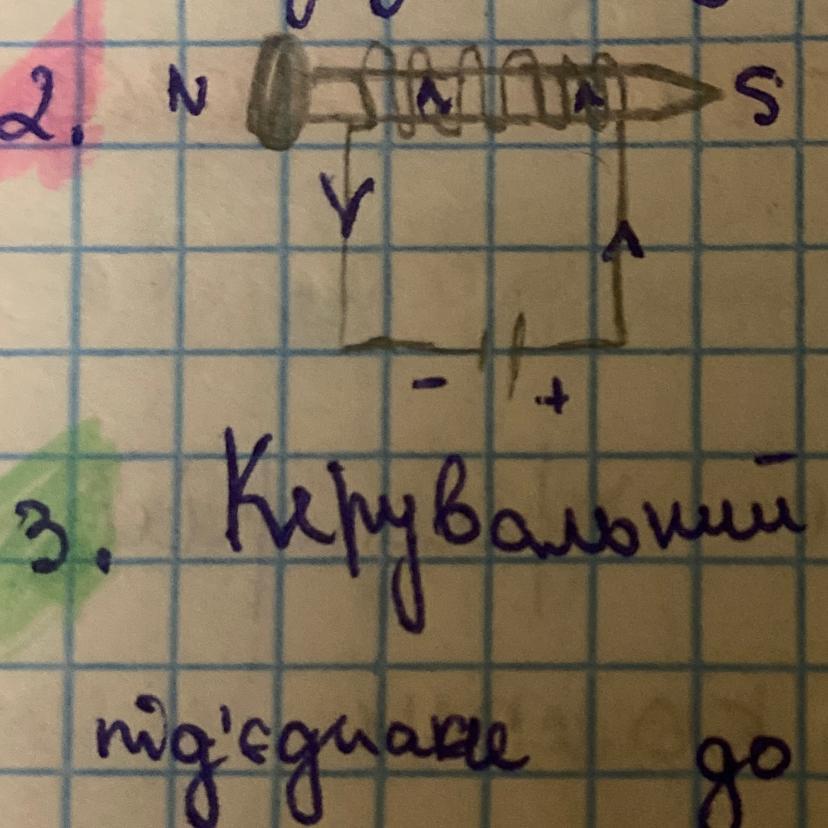 2. N S
- +
3. Керувальний
під'єднане до